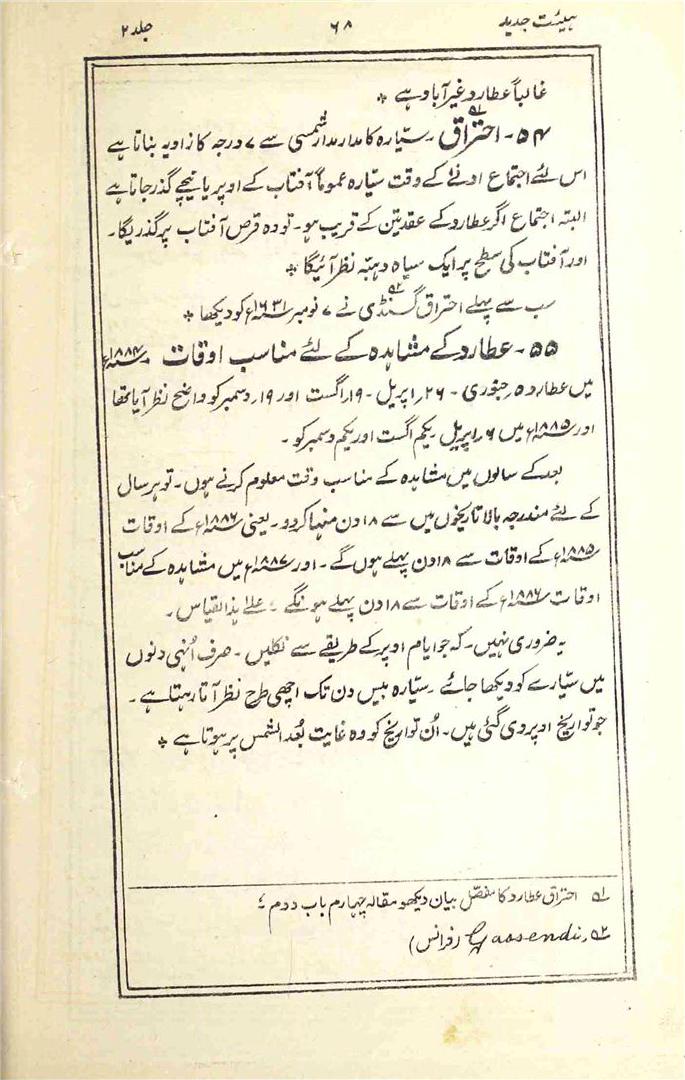 ہیئت جدید ۶۸ جلد ۲
غالباً عطارد غیر آباد ہے *
۵۴ - احتراق ۵۱ سیارہ کا مدار مدار شمسی سے ۷ درجہ کا زاویہ بناتا ہے
اس لئے اجتماع ادنےٰ کے وقت سیارہ عموماً آفتاب کے اوپر یا نیچے گذر جاتا ہے
البتہ اجتماع اگر عطارد کے عقدیتن کے قریب ہو - تو وہ قرص آفتاب پر گذریگا -
اور آفتاب کی سطح پر ایک سیاہ دھبّہ نظر آئیگا *
سب سے پہلے احتراق گسنڈی ۵۲ نے ۷ نومبر ۱۶۳۱ء کو دیکھا *
۵۵ - عطارد کے مشاہدہ کے لئے مناسب اوقات - ۱۸۸۴ء
میں عطارد ۵ جنوری - ۲۶ اپریل - ۱۹ اگست اور ۱۹ دسمبر کو واضح نظر آیا تھا
اور ۱۸۸۵ء میں ۶ اپریل یکم اگست اور یکم دسمبر کو -
بعد کے سالوں میں مشاہدہ کے مناسب وقت معلوم کرنے ہوں - تو ہر سال
کے لئے مندرجہ بالا تاریخوں میں سے ۱۸ دن منہا کر دو - یعنی ۱۸۸۶ء کے اوقات
۱۸۸۵ء کے اوقات سے ۱۸ دن پہلے ہوں گے - اور ۱۸۸۷ء میں مشاہدہ کے مناسب
اوقات ۱۸۸۶ء کے اوقات سے ۱۸ دن پہلے ہونگے - علےٰ ہذا لقیاس -
یہ ضروری نہیں - کہ جو ایام اوپر کے طریقے سے نکلیں - صرف اُنہی دنوں
میں سیّارے کو دیکھا جائے - سیّارہ بیس دن تک اچھی طرح نظر آتا رہتا ہے -
جو تواریخ اوپر دی گئی ہیں - اُن تواریخ کو وہ غایت بُعد الشمس پر ہوتا ہے *
۵۱ احتراق عطارد کا مفصّل بیان دیکھو مقالہ چہارم باب دوم ؛
۵۲ Gassendi, (فرانس)